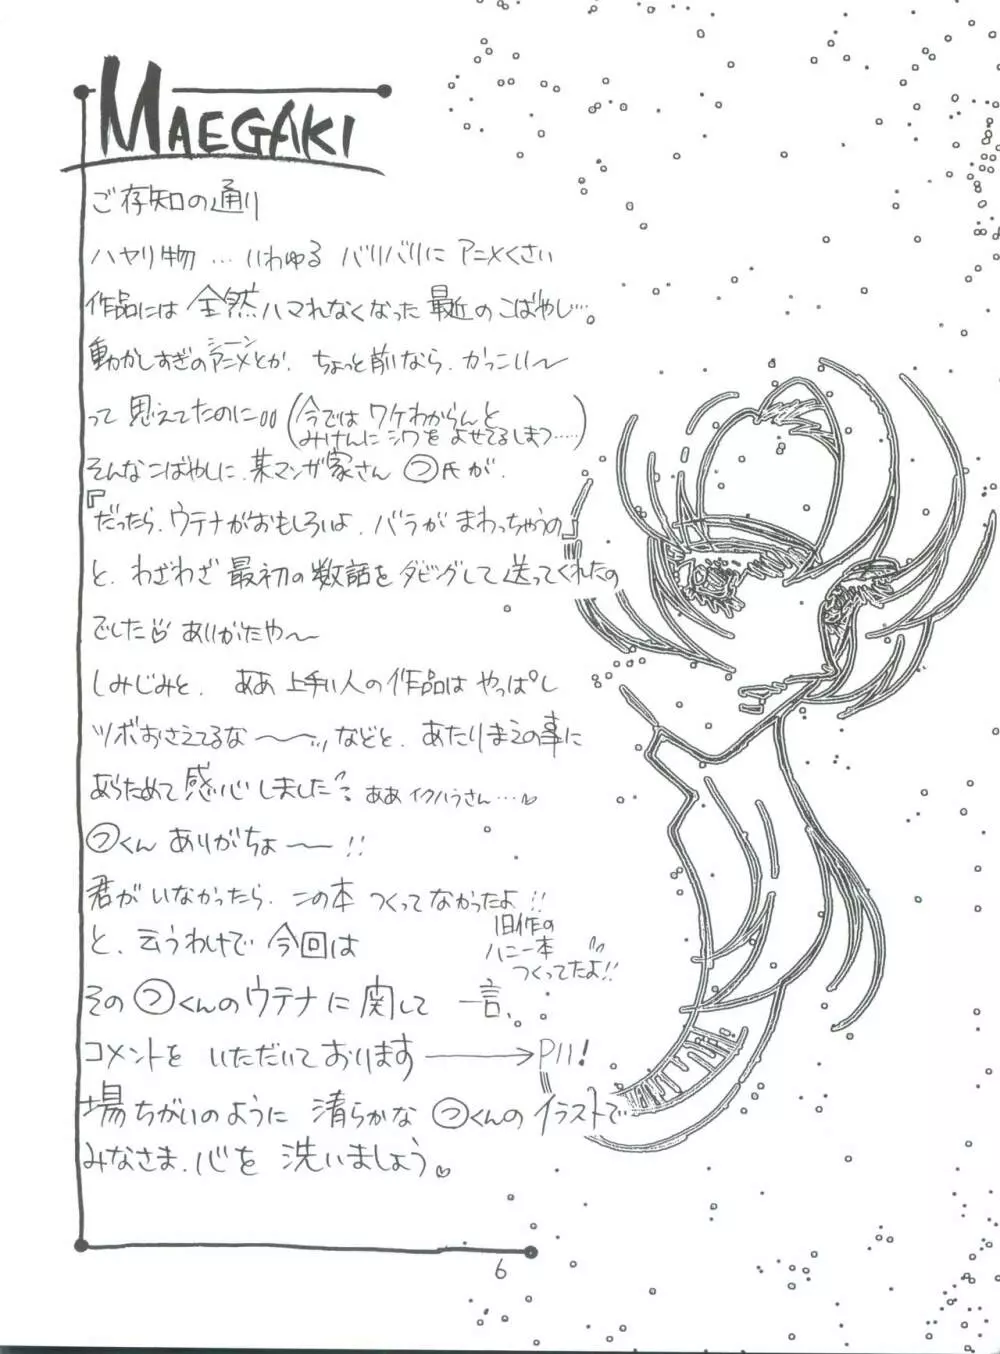 MAEGAKI
ご存知の通り
ハヤリ物…いわゆる バリバリに アニメくさい
作品には 全然ハマれなくなった 最近のこばやし…
動かしすぎのアニメとか、ちょっと前なら、かっこいい〜
シーン
って 思えてたのに
(今では ワケわからんと
みけんに シワを よせてるしまつ……)
そんなこばやしに、某マンガ家さん つ氏が、
『だったら、ウテナがおもしろいよ、バラが まわっちゃうの』
と、わざわざ 最初の数話を ダビングして 送ってくれたの
でした ありがたや〜
しみじみと、 ああ 上手い人の作品は やっぱし
ツボおさえてるな〜〜… などと、あたりまえの事に
あらためて 感心しました ああ イクハラさん…♡
つくん ありがちょ〜〜!!
君が いなかったら、この本 つくってなかったよ!!
旧作の
ハニー本
つくってたよ!!
と、云うわけで 今回は
その つくんのウテナに関して 一言、
コメントを いただいております → P11!
場ちがいのように 清らかな つくんの イラストで
みなさま、心を 洗いましょう。♡
6